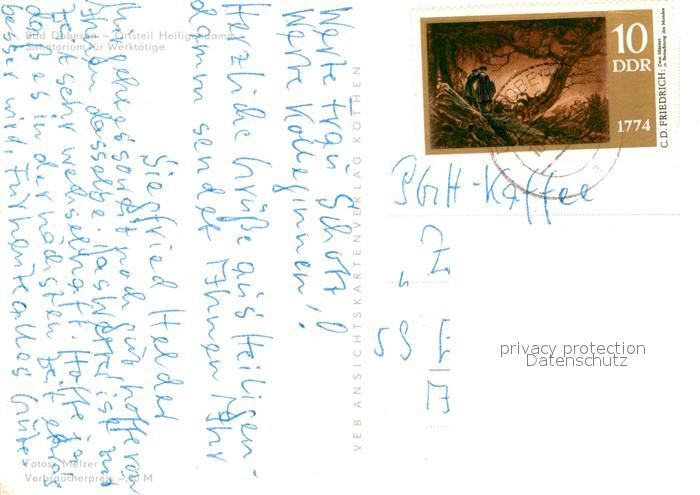 Bad Doberan – Ortsteil Heiligendamm
Sanatorium für Werktätige
Werte Frau Scholz!
Werte Kolleginnen!
Herzliche Grüße aus Heiligen-
damm sendet Ihnen Ihr
Siegfried Helder
Mir geht es sonst noch gut hoffe von
Ihnen dasselbe. Das Wetter ist zur
Zeit sehr wechselhaft. Hoffe
daß es in der nächsten Zeit etwas
besser wird. Für heute alles Gute.
Fotos: Melzer
Verbraucherpreis –,20 M
VEB ANSICHTSKARTENVERLAG KÖTHEN
10
DDR
1774
C. D. FRIEDRICH:
Zwei Männer
in Betrachtung des Mondes
PGH-Kaffee
59
privacy protection
Datenschutz